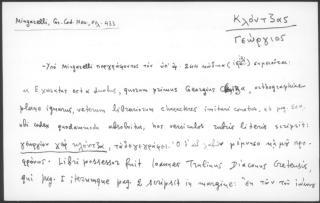 Mingarelli, Gr. Cod. Nan., σελ. 433
Κλόντζας
Γεώργιος
-Υπό Mingarelli περιγράφοντος τον υπ' ἀρ. 244 κώδικα σημειοῦται:
« Exaratus est a duobus, quorum primus Georgius orthographiae
plane ignarus, veterum librariorum characteres imitari conatus, et pag. 500,
ubi codex quodammodo absolvitur, hos versiculos rubris literis scripsit:
γεωργίου χεὶρ κλόντζα, τὸ ὁ δὲ λαβὼν μέμνησο
Libri possessor fuit Ioannes Diaconus Cretensis,
qui pag. 1, iterumque pag. 2 scripsit in margine: ἐκ τῶν τοῦ